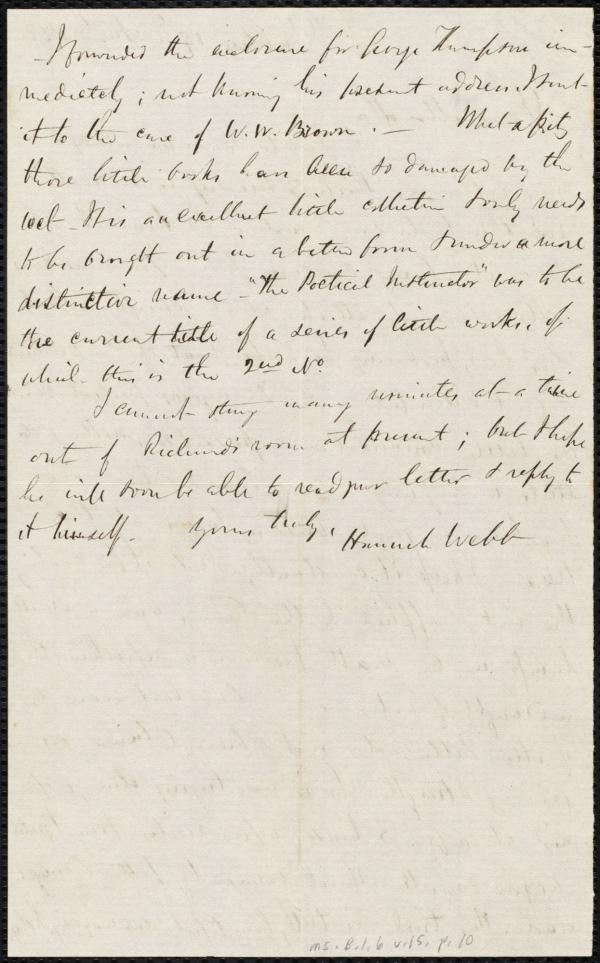 - I forwarded the enclosure for George Thompson im-
mediately; not knowing his present address, I sent
it to the care of W. W. Brown. — What a pity
those little books have been so damaged by the
wet - It is an excellent little collection & only needs
to be brought out in a better form & under a more
distinctive name - "The Poetical Instructor" was to be
the current title of a series of little works, of
which this is the 2nd No.
I cannot stay many minutes at a time
out of Richard's room at present; but I hope
he will soon be able to read your letter & reply to
it himself. Yours truly, Hannah Webb
ms. B.1.6 v.15, p. 10